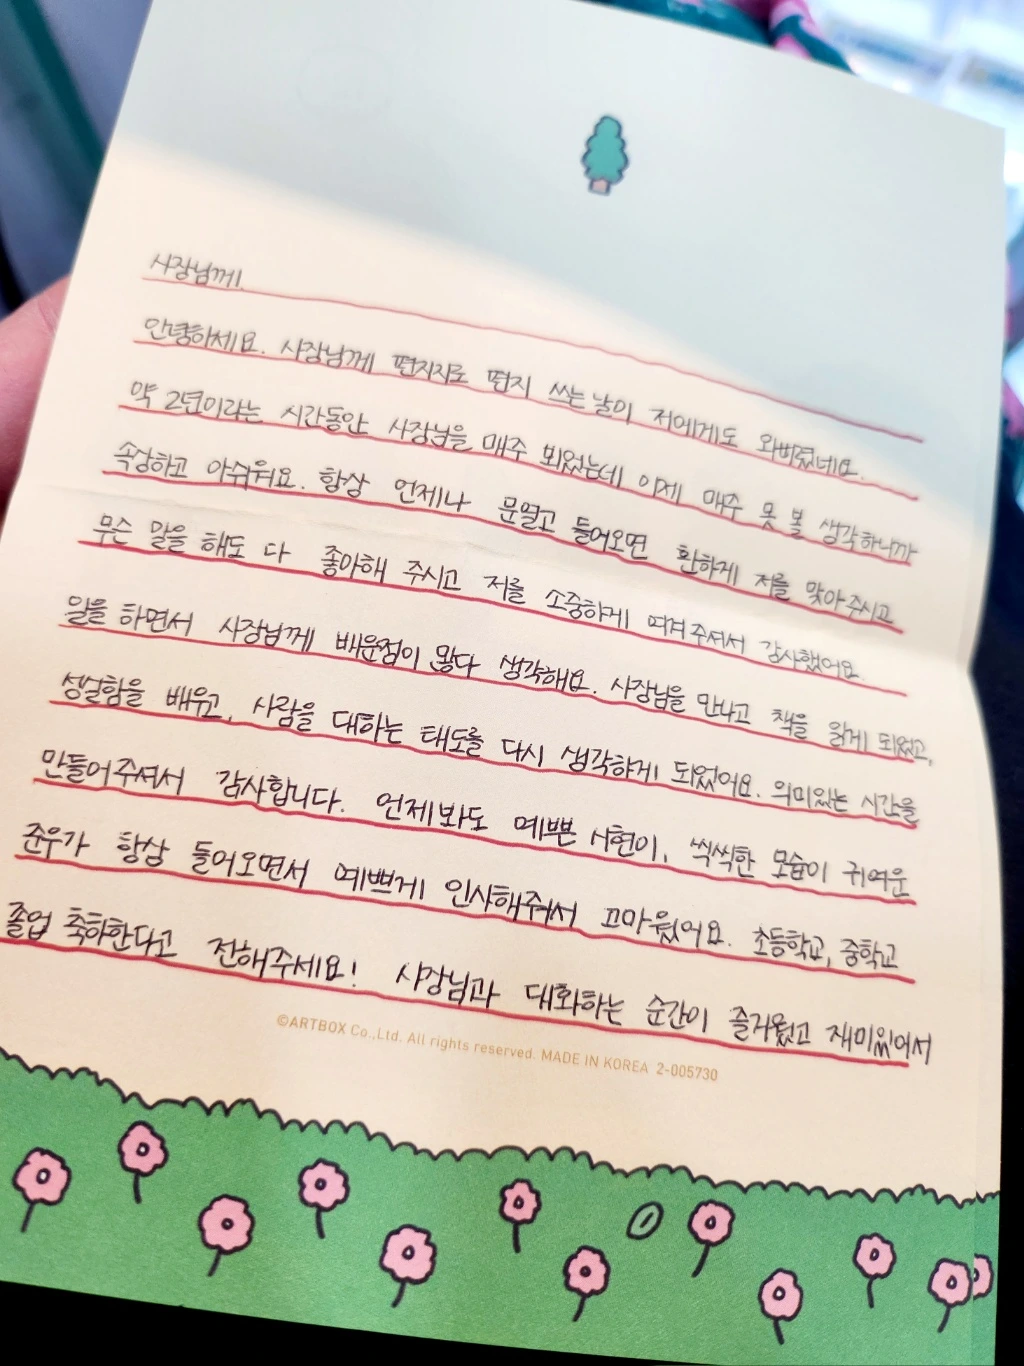 사장님께.
안녕하세요. 사장님께 편지지로 편지 쓰는 날이 저에게도 와버렸네요.
약 2년이라는 시간동안 사장님을 매주 뵈었는데 이제 매주 못 볼 생각하니까
속상하고 아쉬워요. 항상 언제나 문열고 들어오면 환하게 저를 맞아주시고
무슨 말을 해도 다 좋아해 주시고 저를 소중하게 여겨주셔서 감사했어요.
일을 하면서 사장님께 배운점이 많다 생각해요. 사장님을 만나고 책을 읽게 되었고,
성실함을 배우고, 사람을 대하는 태도를 다시 생각하게 되었어요. 의미있는 시간을
만들어주셔서 감사합니다. 언제봐도 예쁜 서현이, 씩씩한 모습이 귀여운
준우가 항상 들어오면서 예쁘게 인사해줘서 고마웠어요. 초등학교, 중학교
졸업 축하한다고 전해주세요! 사장님과 대화하는 순간이 즐거웠고 재미있어서
©ARTBOX Co.,Ltd. All rights reserved. MADE IN KOREA 2-005730